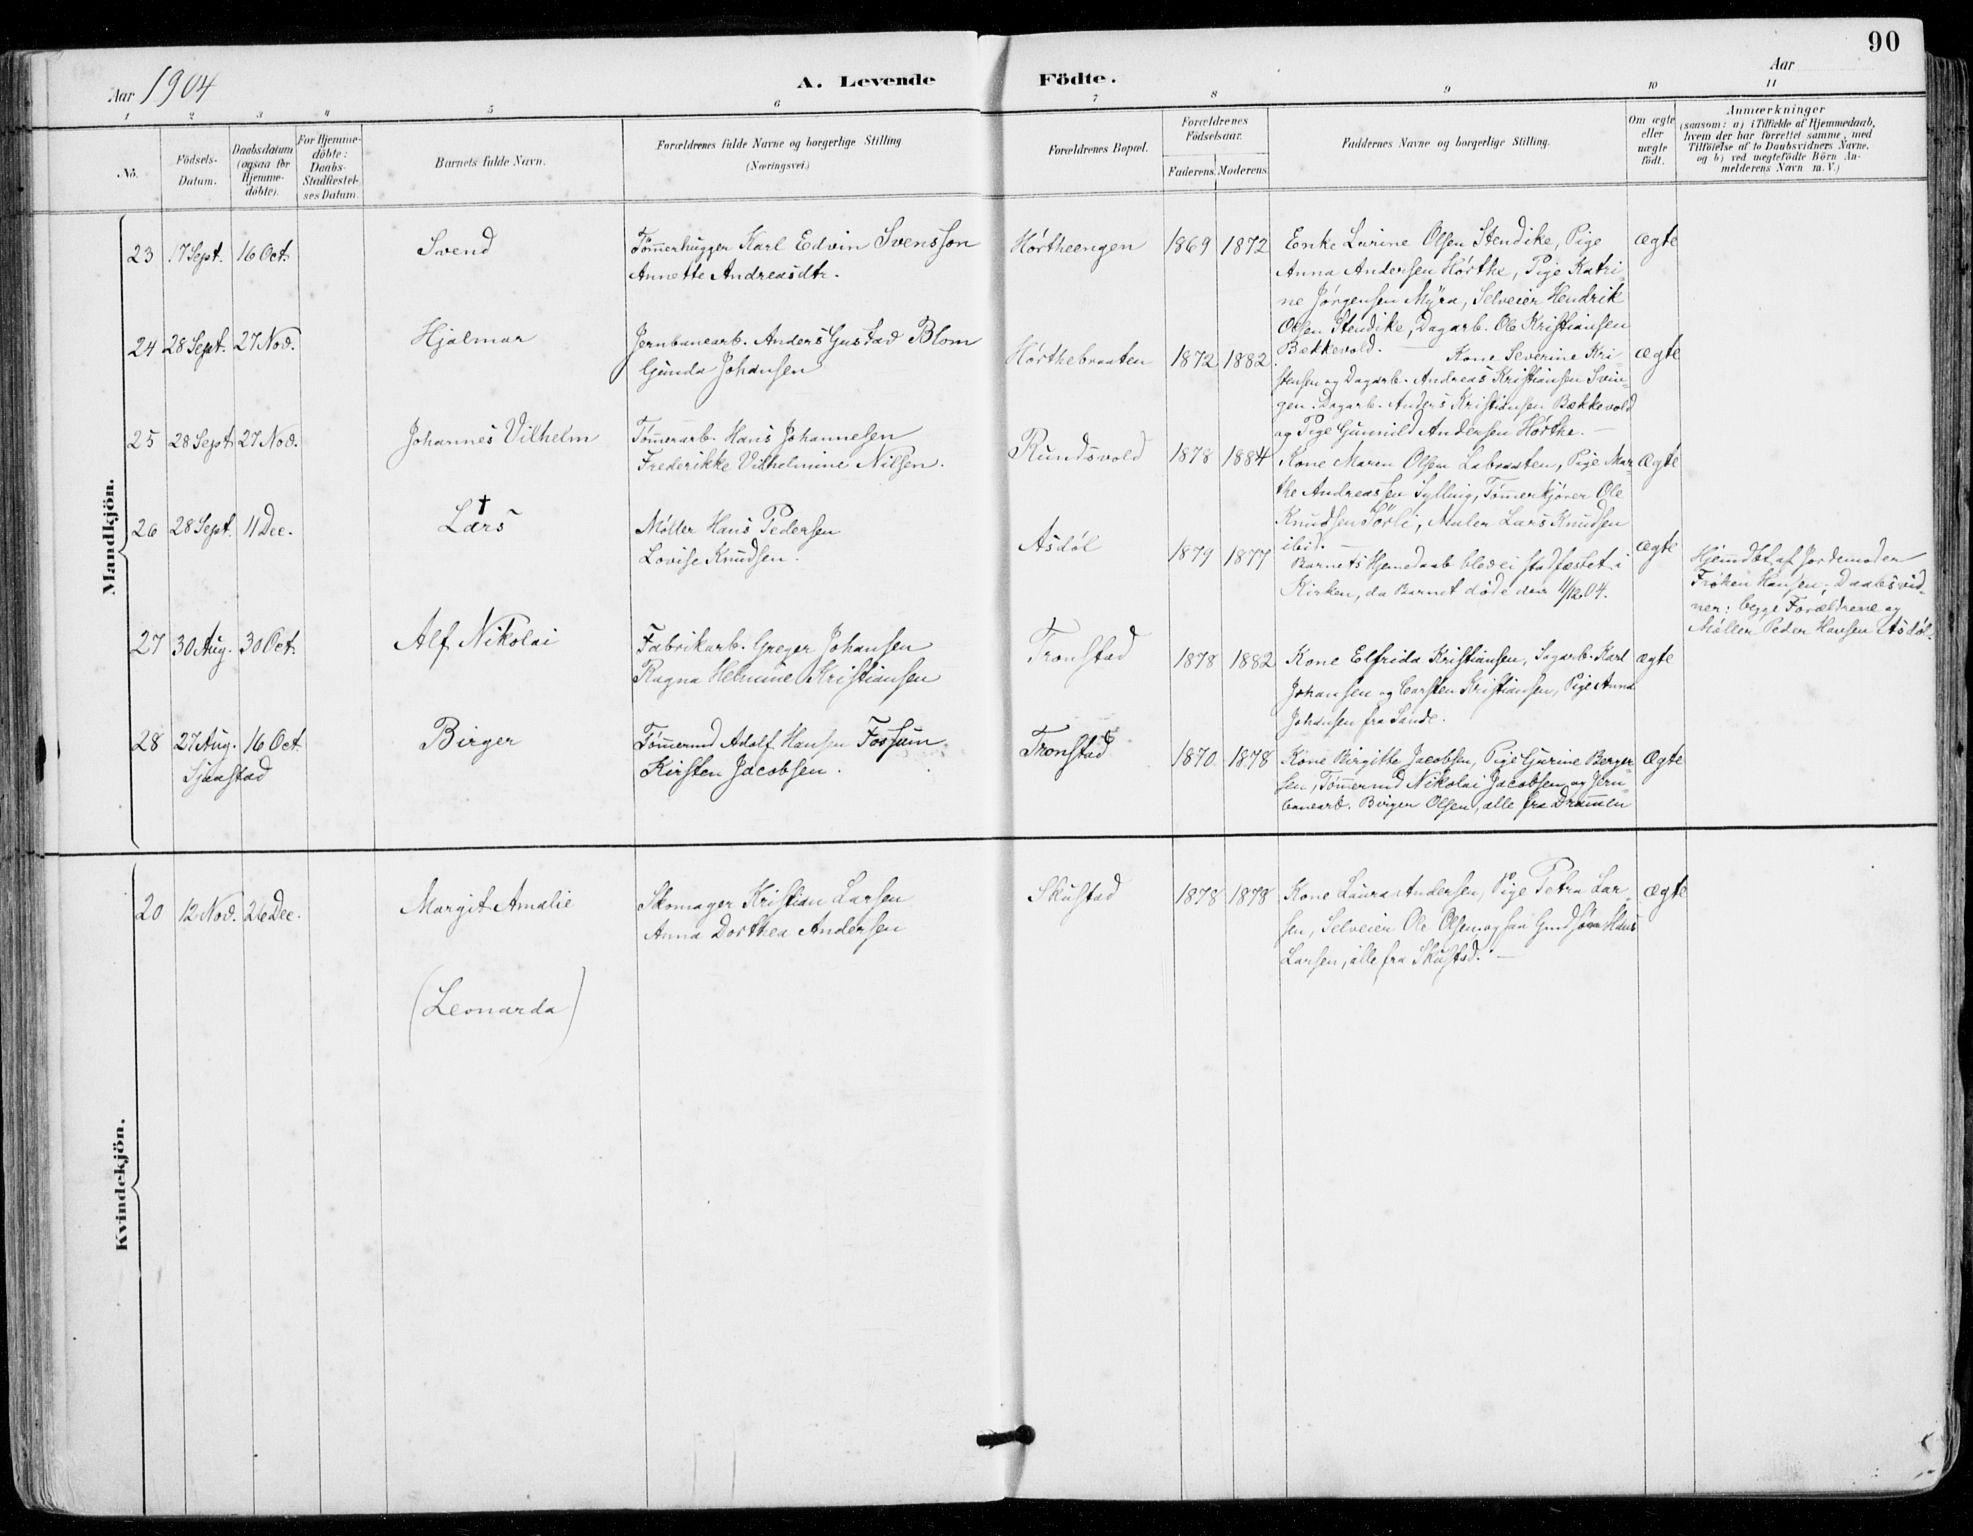 90
Aar 1904
A. Levende Födte.
Aar
1 2 3 4 5 6 7 8 9 10 11
No.
Födsels-
Datum.
Daabsdatum
(ogsaa for
Hjemme-
döbte).
For Hjemme-
döbte:
Daabs-
Stadfæstel-
ses Datum.
Barnets fulde Navn.
Forældrenes fulde Navne og borgerlige Stilling
(Næringsvei.)
Forældrenes Bopæl.
Forældrenes
Födselsaar.
Faderens. Moderens.
Faddernes Navne og borgerlige Stilling.
Om ægte
eller
uægte
födt.
Anmærkninger
(saasom: a) i Tilfælde af Hjemmedaab,
hvem der har forrettet samme, med
Tilföielse af to Daabsvidners Navne,
og b) ved uægtefödte Börn An-
melderens Navn m. V.)
Mandkjön.
23 17 Sept. 16 Oct. Svend
Tömmerhugger Karl Edvin Svensson
Annette Andreasdtr.
Hørtheengen 1869 1872
Enke Lurine Olsen Stendike, Pige
Anna Andersen Hørthe, Pige Katri-
ne Jørgensen Myra, Selveier Hendrik
Olsen Stendike, Dagarb. Ole Kristiansen
Bækkevold.
ægte
24 28 Sept. 27 Nov. Hjalmar
Jernbanearb. Anders Gustad Blom
Gunda Johansen
Hørthebraaten 1872 1882
Kone Severine Kri-
stensen og Dagarb. Andreas Kristiansen Svin-
gen. Dagarb. Anders Kristiansen Bækkevold
og Pige Gunnild Andersen Hørthe.
ægte
25 28 Sept. 27 Nov. Johannes Vilhelm
Tömmerarb. Hans Johannesen
Frederikke Vilhelmine Nilsen.
Rundsvold 1878 1884
Kone Maren Olsen Labraaten, Pige Mar-
the Andreassen Sylling, Tömmerkjører Ole
Knudsen Törli, Maler Lars Knudsen
ibid.
ægte
26 28 Sept. 11 Dec. Lars †
Møller Hans Pedersen
Lovise Knudsen.
Asdøl 1879 1877
Barnets Hjemedaab blev ei stadfæstet i
Kirken, da Barnet døde den 11/12 04.
ægte
Hjemdbt af Jordemoder
Frøken Hansen; Daabsvid-
ner: begge Forældrene og
Møller Peder Hansen Asdøl.
27 30 Aug. 30 Oct. Alf Nikolai
Fabrikarb. Greger Johansen
Ragna Helmine Kristiansen
Tronstad 1878 1882
Kone Elfrida Kristiansen, Sagarb. Karl
Johansen og Carsten Kristiansen, Pige Anna
Johansen fra Sande.
ægte
28 27 Aug. 16 Oct. Birger
Sjaastad
Tömmermd Adolf Hansen Fossum
Kirsten Jacobsen.
Tronstad 1870 1878
Kone Birgitte Jacobsen, Pige Gurine Berger-
sen, Tömmermd Nikolai Jacobsen og Jern-
banearb. Birger Olsen, alle fra Drammen
Ægte
Kvindekjön.
20 12 Nov. 26 Dec. Margit Amalie
(Leonarda)
Skomager Kristian Larsen
Anna Dorthea Andersen
Skustad 1878 1878
Kone Laura Andersen, Pige Petra Lar-
sen, Selveier Ole Olsen og Hans
Larsen, alle fra Skustad.
ægte